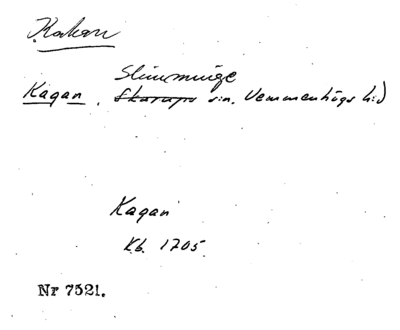 Kakan
Slimminge
Kagan, Skarups sn. Vemmenhögs hd
Kagan
Kb. 1705.
Nr 7521.